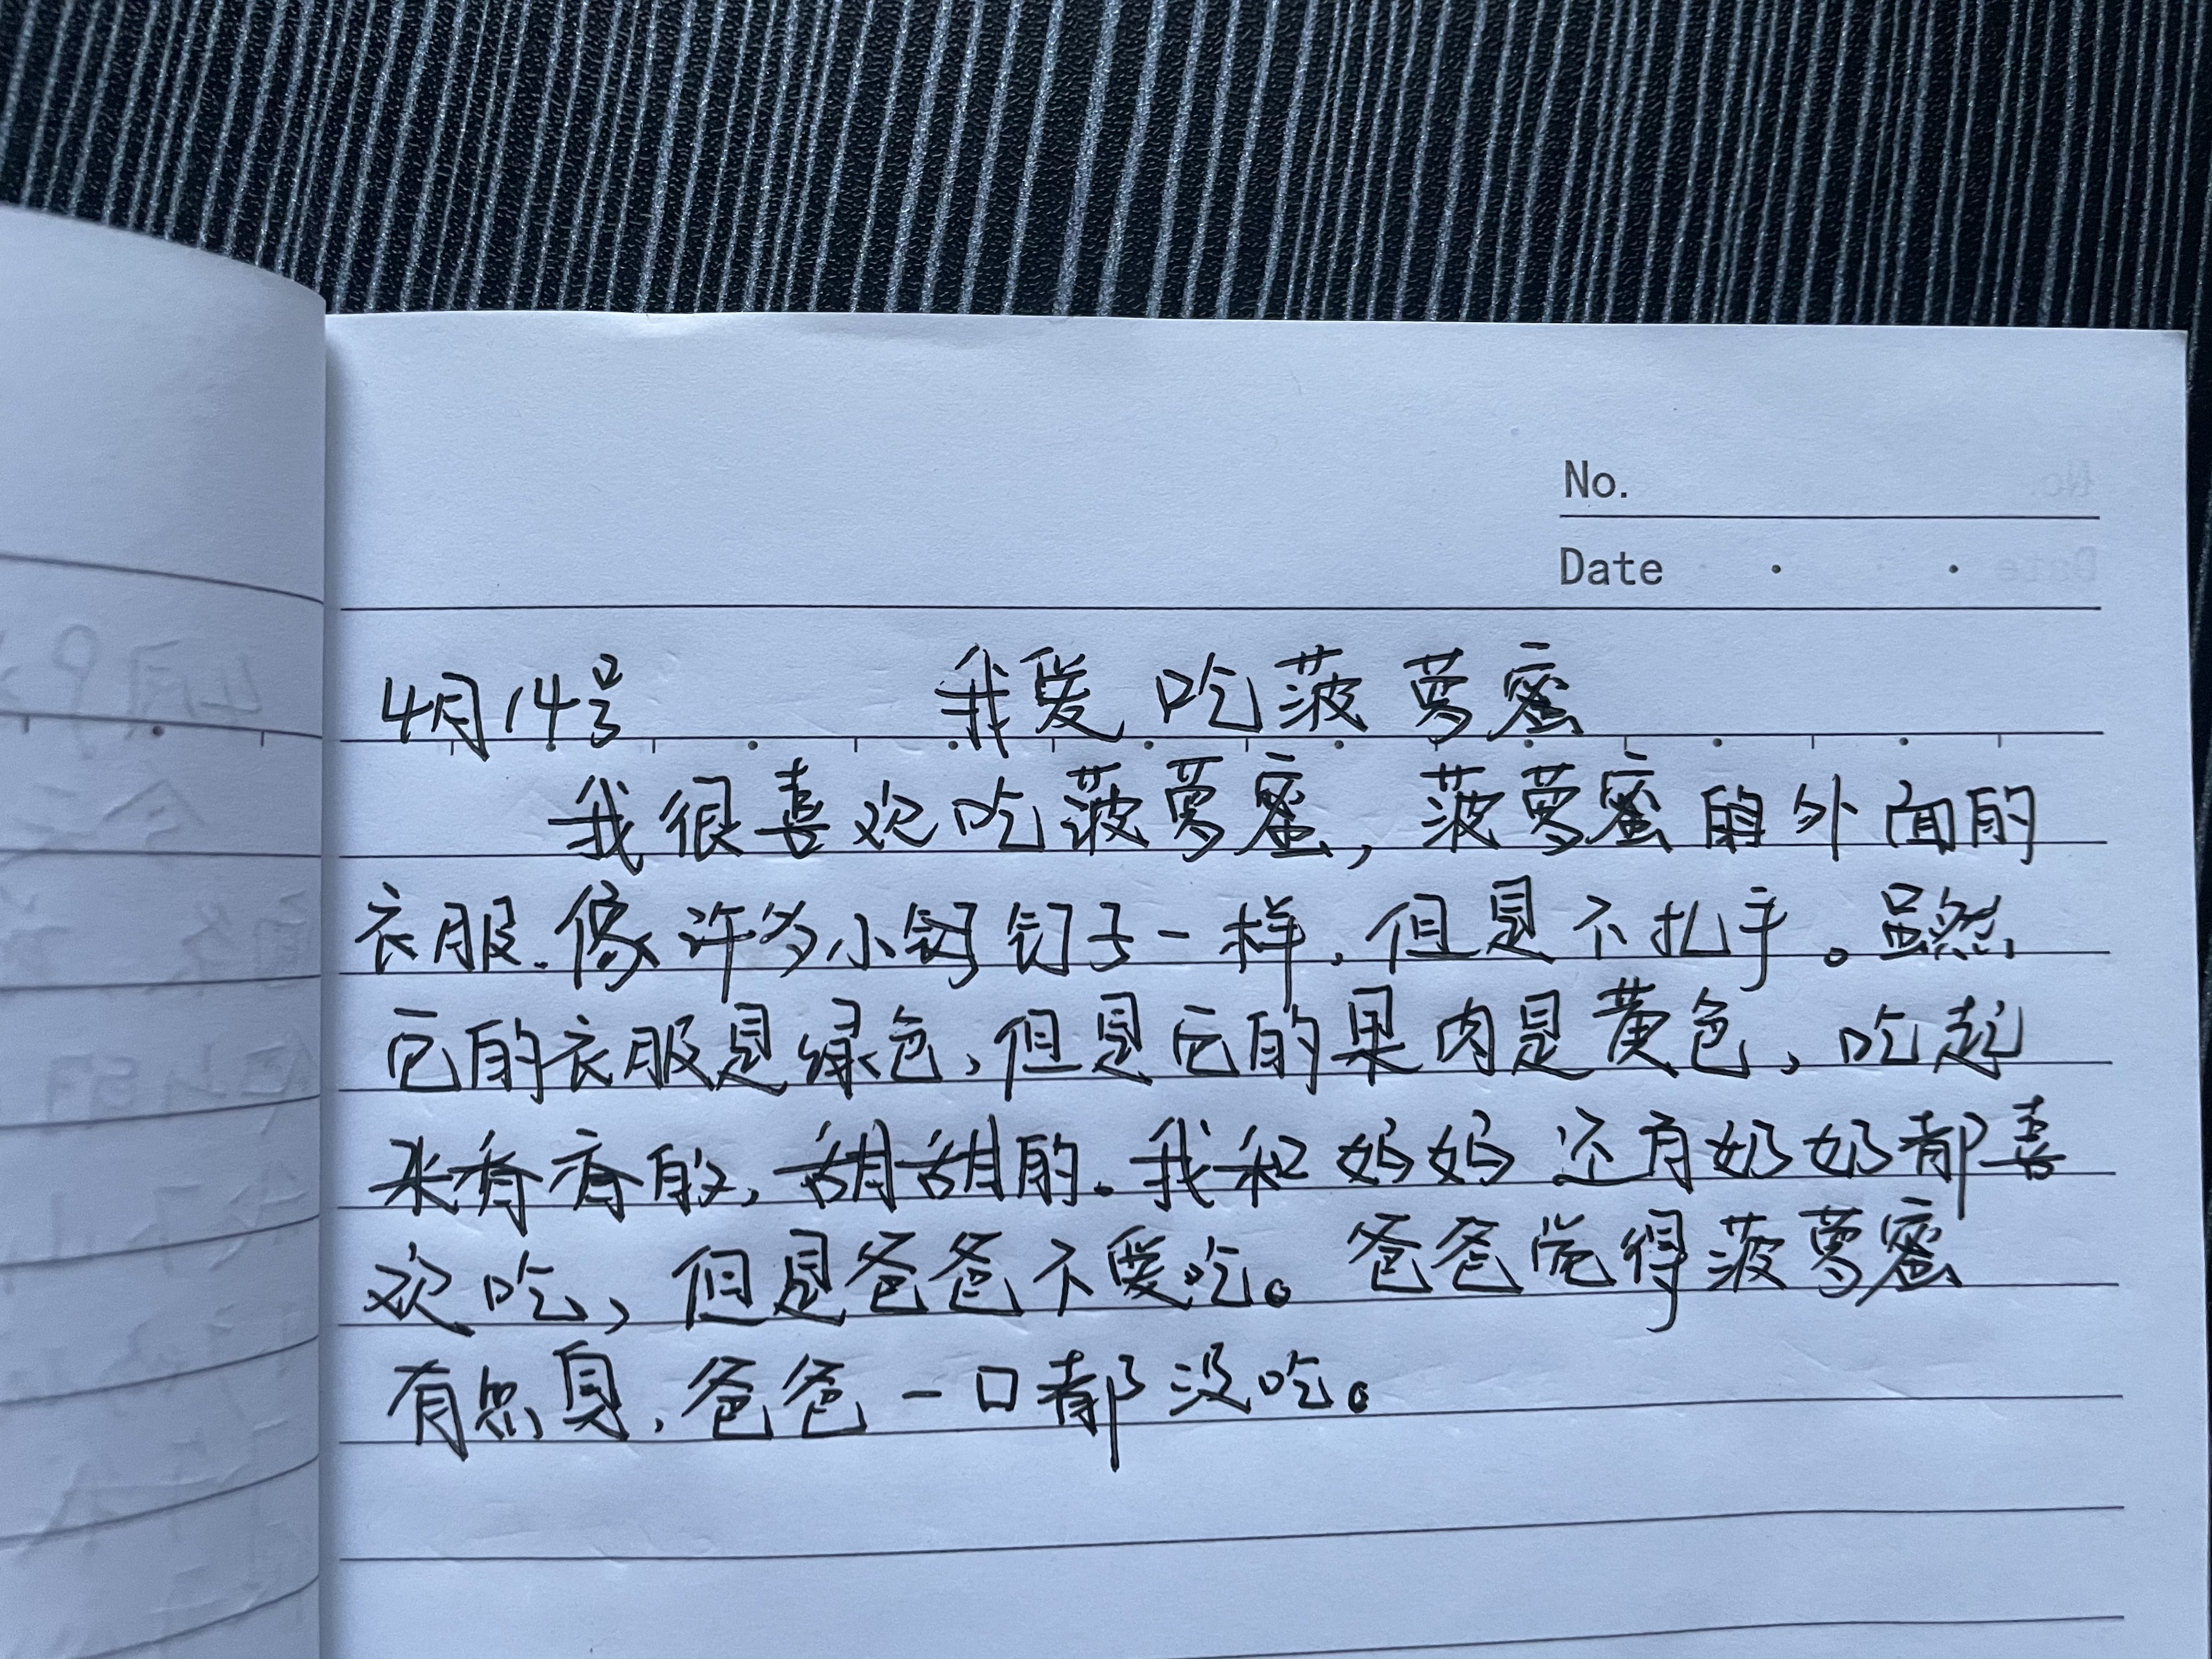 No.
Date
4月14号 我爱吃菠萝蜜
我很喜欢吃菠萝蜜，菠萝蜜的外面的
衣服.像许多小钉子一样，但是不扎手。虽然
它的衣服是绿色，但是它的果肉是黄色，吃起
来香香的，甜甜的。我和妈妈还有奶奶都喜
欢吃，但是爸爸不爱吃。爸爸觉得菠萝蜜
有点臭，爸爸一口都没吃。